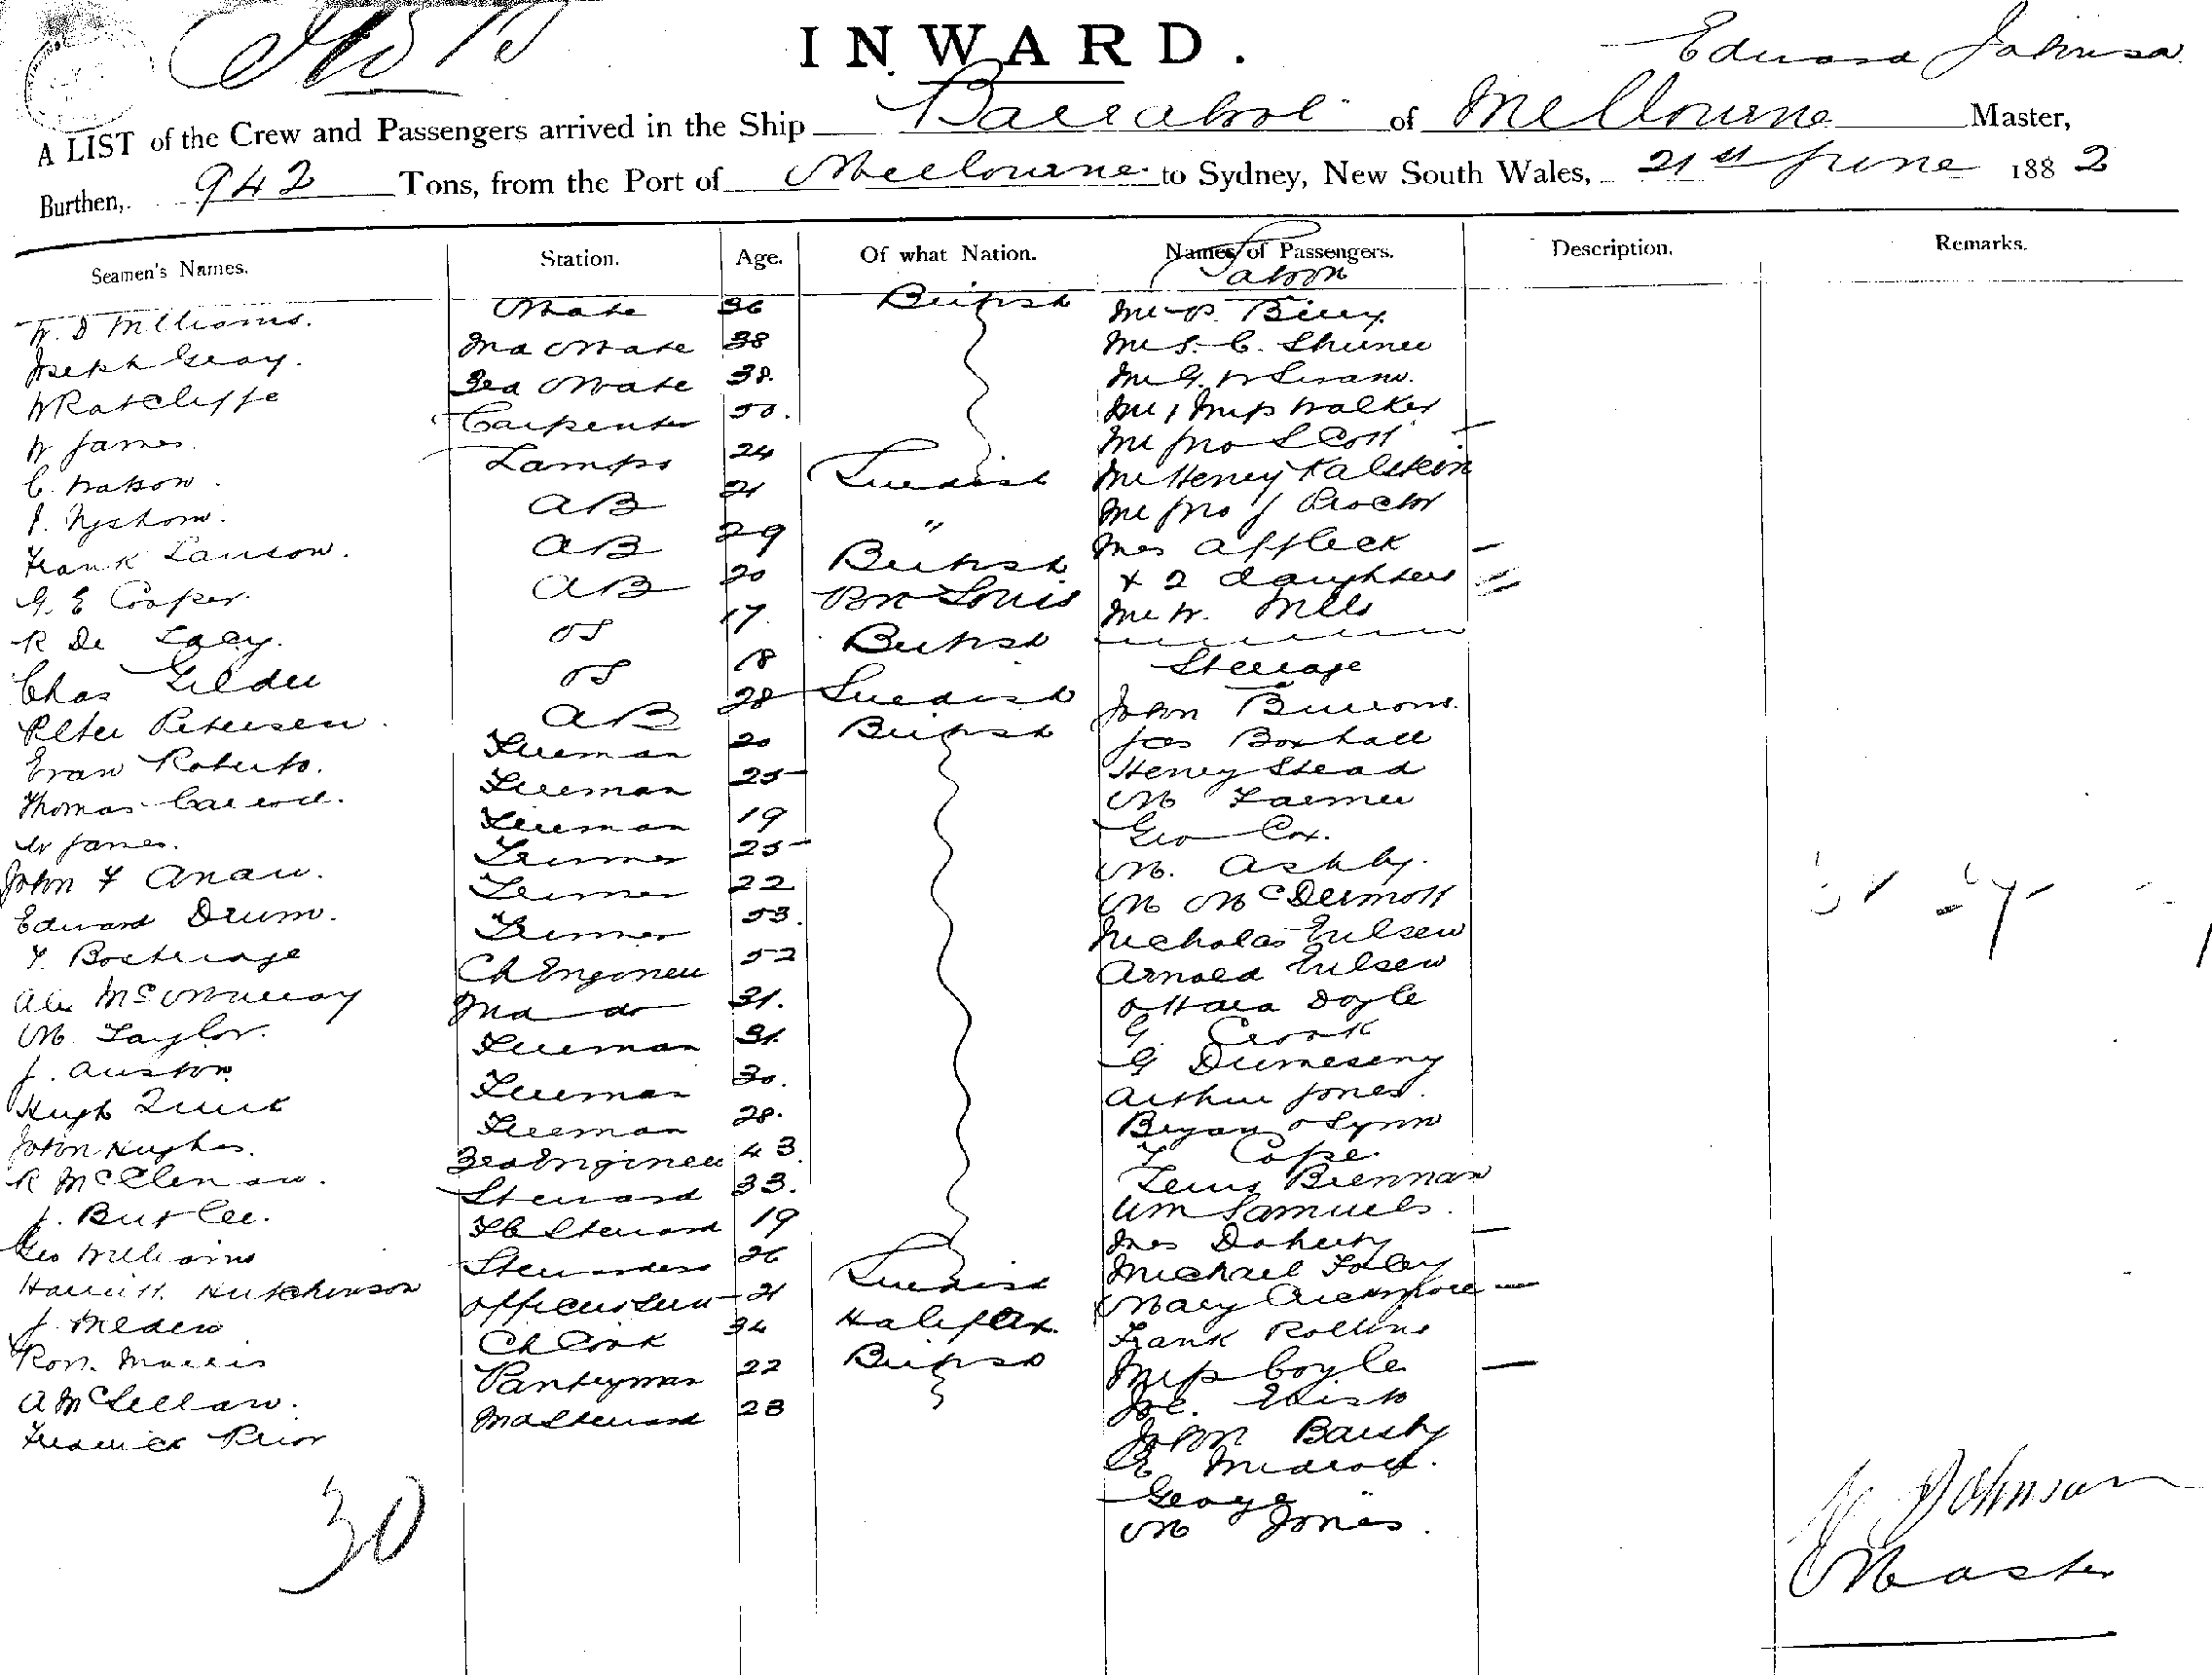 INWARD.
Edward Johnson
A LIST of the Crew and Passengers arrived in the Ship Barrabool of Melbourne Master,
Burthen, 942 Tons, from the Port of Melbourne to Sydney, New South Wales, 21st June 1882
Seamen's Names. Station. Age. Of what Nation. Names of Passengers. Description. Remarks.
Saloon
W. D Williams. Mate 36 British Mr P. Birry
Joseph Gray. 2nd Mate 38 Mr S. C.
W Ratcliffe 3rd Mate 38. Mr G. W
W James Carpenter 50. Mr & Mrs Walker
C. Watson. Lamps 24 Mr Jno Scott
J. Nystrom. AB 21 Swedish Mr Henry Ralston
Frank Lawson. AB 29 " Mr Jno J Proctor
G. E Cooper. AB 20 British Mrs Affleck
R De Lacy. OS 17 Port Louis & 2 daughters
Chas Gilder OS 18 British Mr W. Mills
Peter Petersen AB 28 Swedish Steerage
Evan Roberts. Fireman 20 British John Burrows.
Thomas Carroll. Fireman 25 Jas Boxhall
W James. Fireman 19 Henry Stead
John F Anau. Trimmer 25 M Farmer
Edward Drum. Trimmer 22 Geo Cox.
F. Trimmer 53. M. Ashby.
Alex McMurray Ch Engineer 52 M McDermott
M Taylor. 2nd do 31. Nicholas Eulsen
J. Auston Fireman 31 Arnold Eulsen
Hugh Quirk Fireman 30. O Hara Doyle
John Hughes. Fireman 28. G. Crook
R McClenan. 3rd Engineer 43 G Dumeseny
J. Butler. Steward 33. Arthur Jones.
Geo Williams F C Steward 19 Bryan O Lynn
Harriett Hutchinson Stewardess 26 F Cope.
J. Meldew Officers Serv 21 Swedish Lewis Brennan
Robt. Morris Ch Cook 34 Halifax Wm Samuels.
A McLellan. Pantryman 22 British Mrs Doherty
Frederick Prior 2nd Steward 23 Michael Foley
Mary
Frank Rollins
Mrs Coyle
Joe.
John
E
George
M Jones.
30
J Johnson
Master